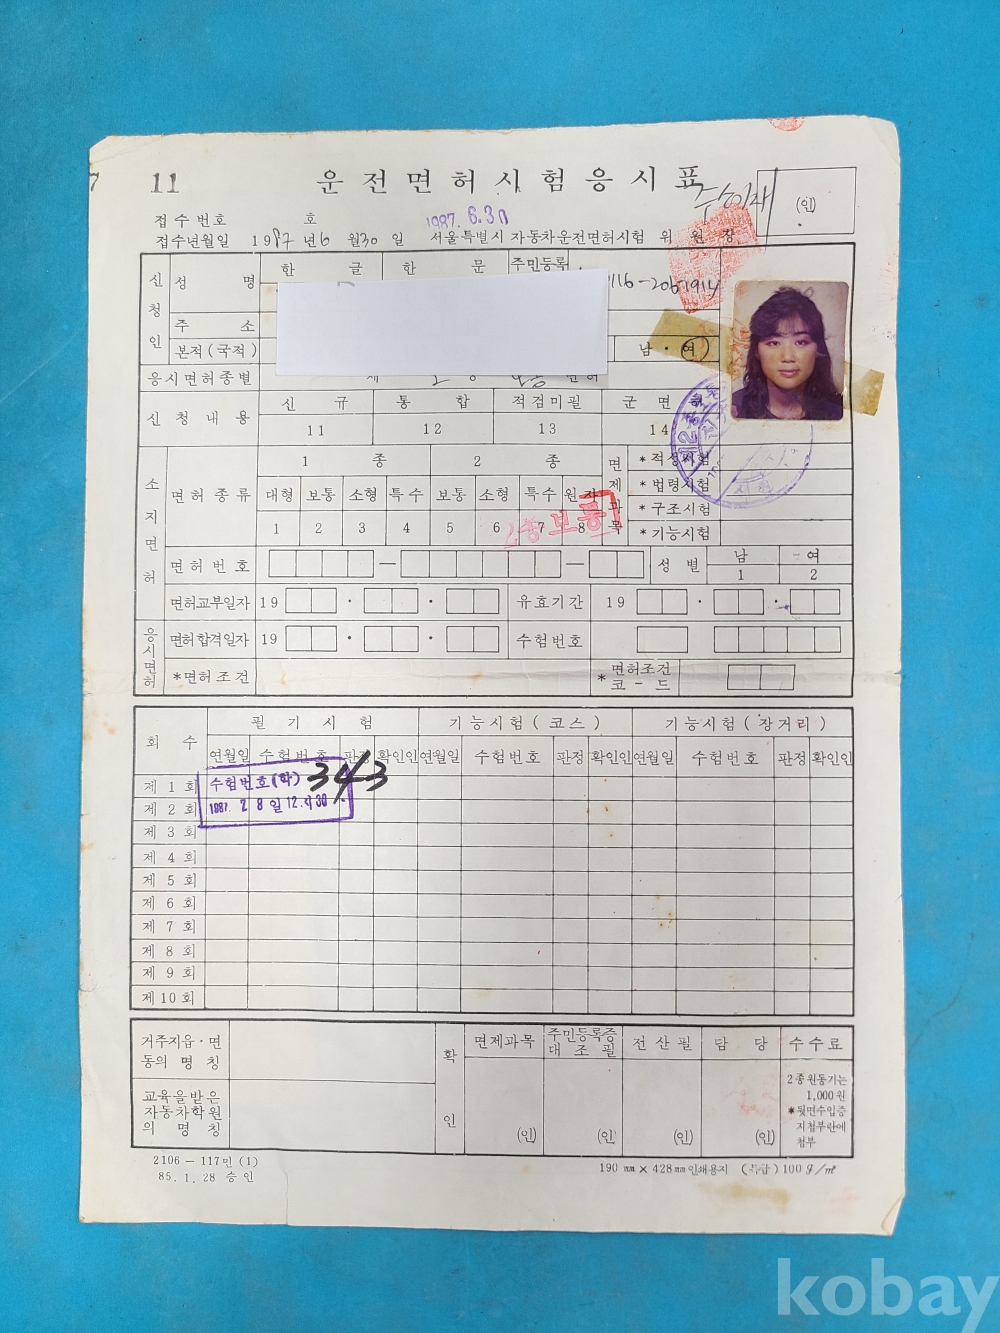 11 운전면허시험응시표
(인)
접수번호 호
1987. 6. 30
접수년월일 1987년 6월 30일 서울특별시 자동차운전면허시험 위원장
신청인 성명 한글 한문 주민등록
주소
본적(국적) 남·여
응시면허종별
신청내용 신규 통합 적검미필 군면
11 12 13 14
소지면허 면허종류 1종 2종 면제과목 *적성시험
대형 보통 소형 특수 보통 소형 특수 원자 *법령시험
1 2 3 4 5 6 7 8 *구조시험
2종보통 *기능시험
면허번호 — — 성별 남 여
1 2
면허교부일자 19 . . 유효기간 19 . .
응시면허 면허합격일자 19 . . 수험번호
*면허조건 *면허조건코-드
회수 필기시험 기능시험(코스) 기능시험(장거리)
연월일 수험번호 판정 확인인 연월일 수험번호 판정 확인인 연월일 수험번호 판정 확인인
제 1 회 수험번호(학) 343
제 2 회
제 3 회
제 4 회
제 5 회
제 6 회
제 7 회
제 8 회
제 9 회
제10회
거주지읍·면동의 명칭 확인 면제과목 주민등록증대조필 전산필 담당 수수료
교육을받은자동차학원의 명칭
2종원동기는
1,000원
*뒷면수입증
지첩부란에
첩부
(인) (인) (인) (인)
2106-117민(1) 190㎜×428㎜인쇄용지 (특급)100g/㎡
85.1.28 승인
kobay